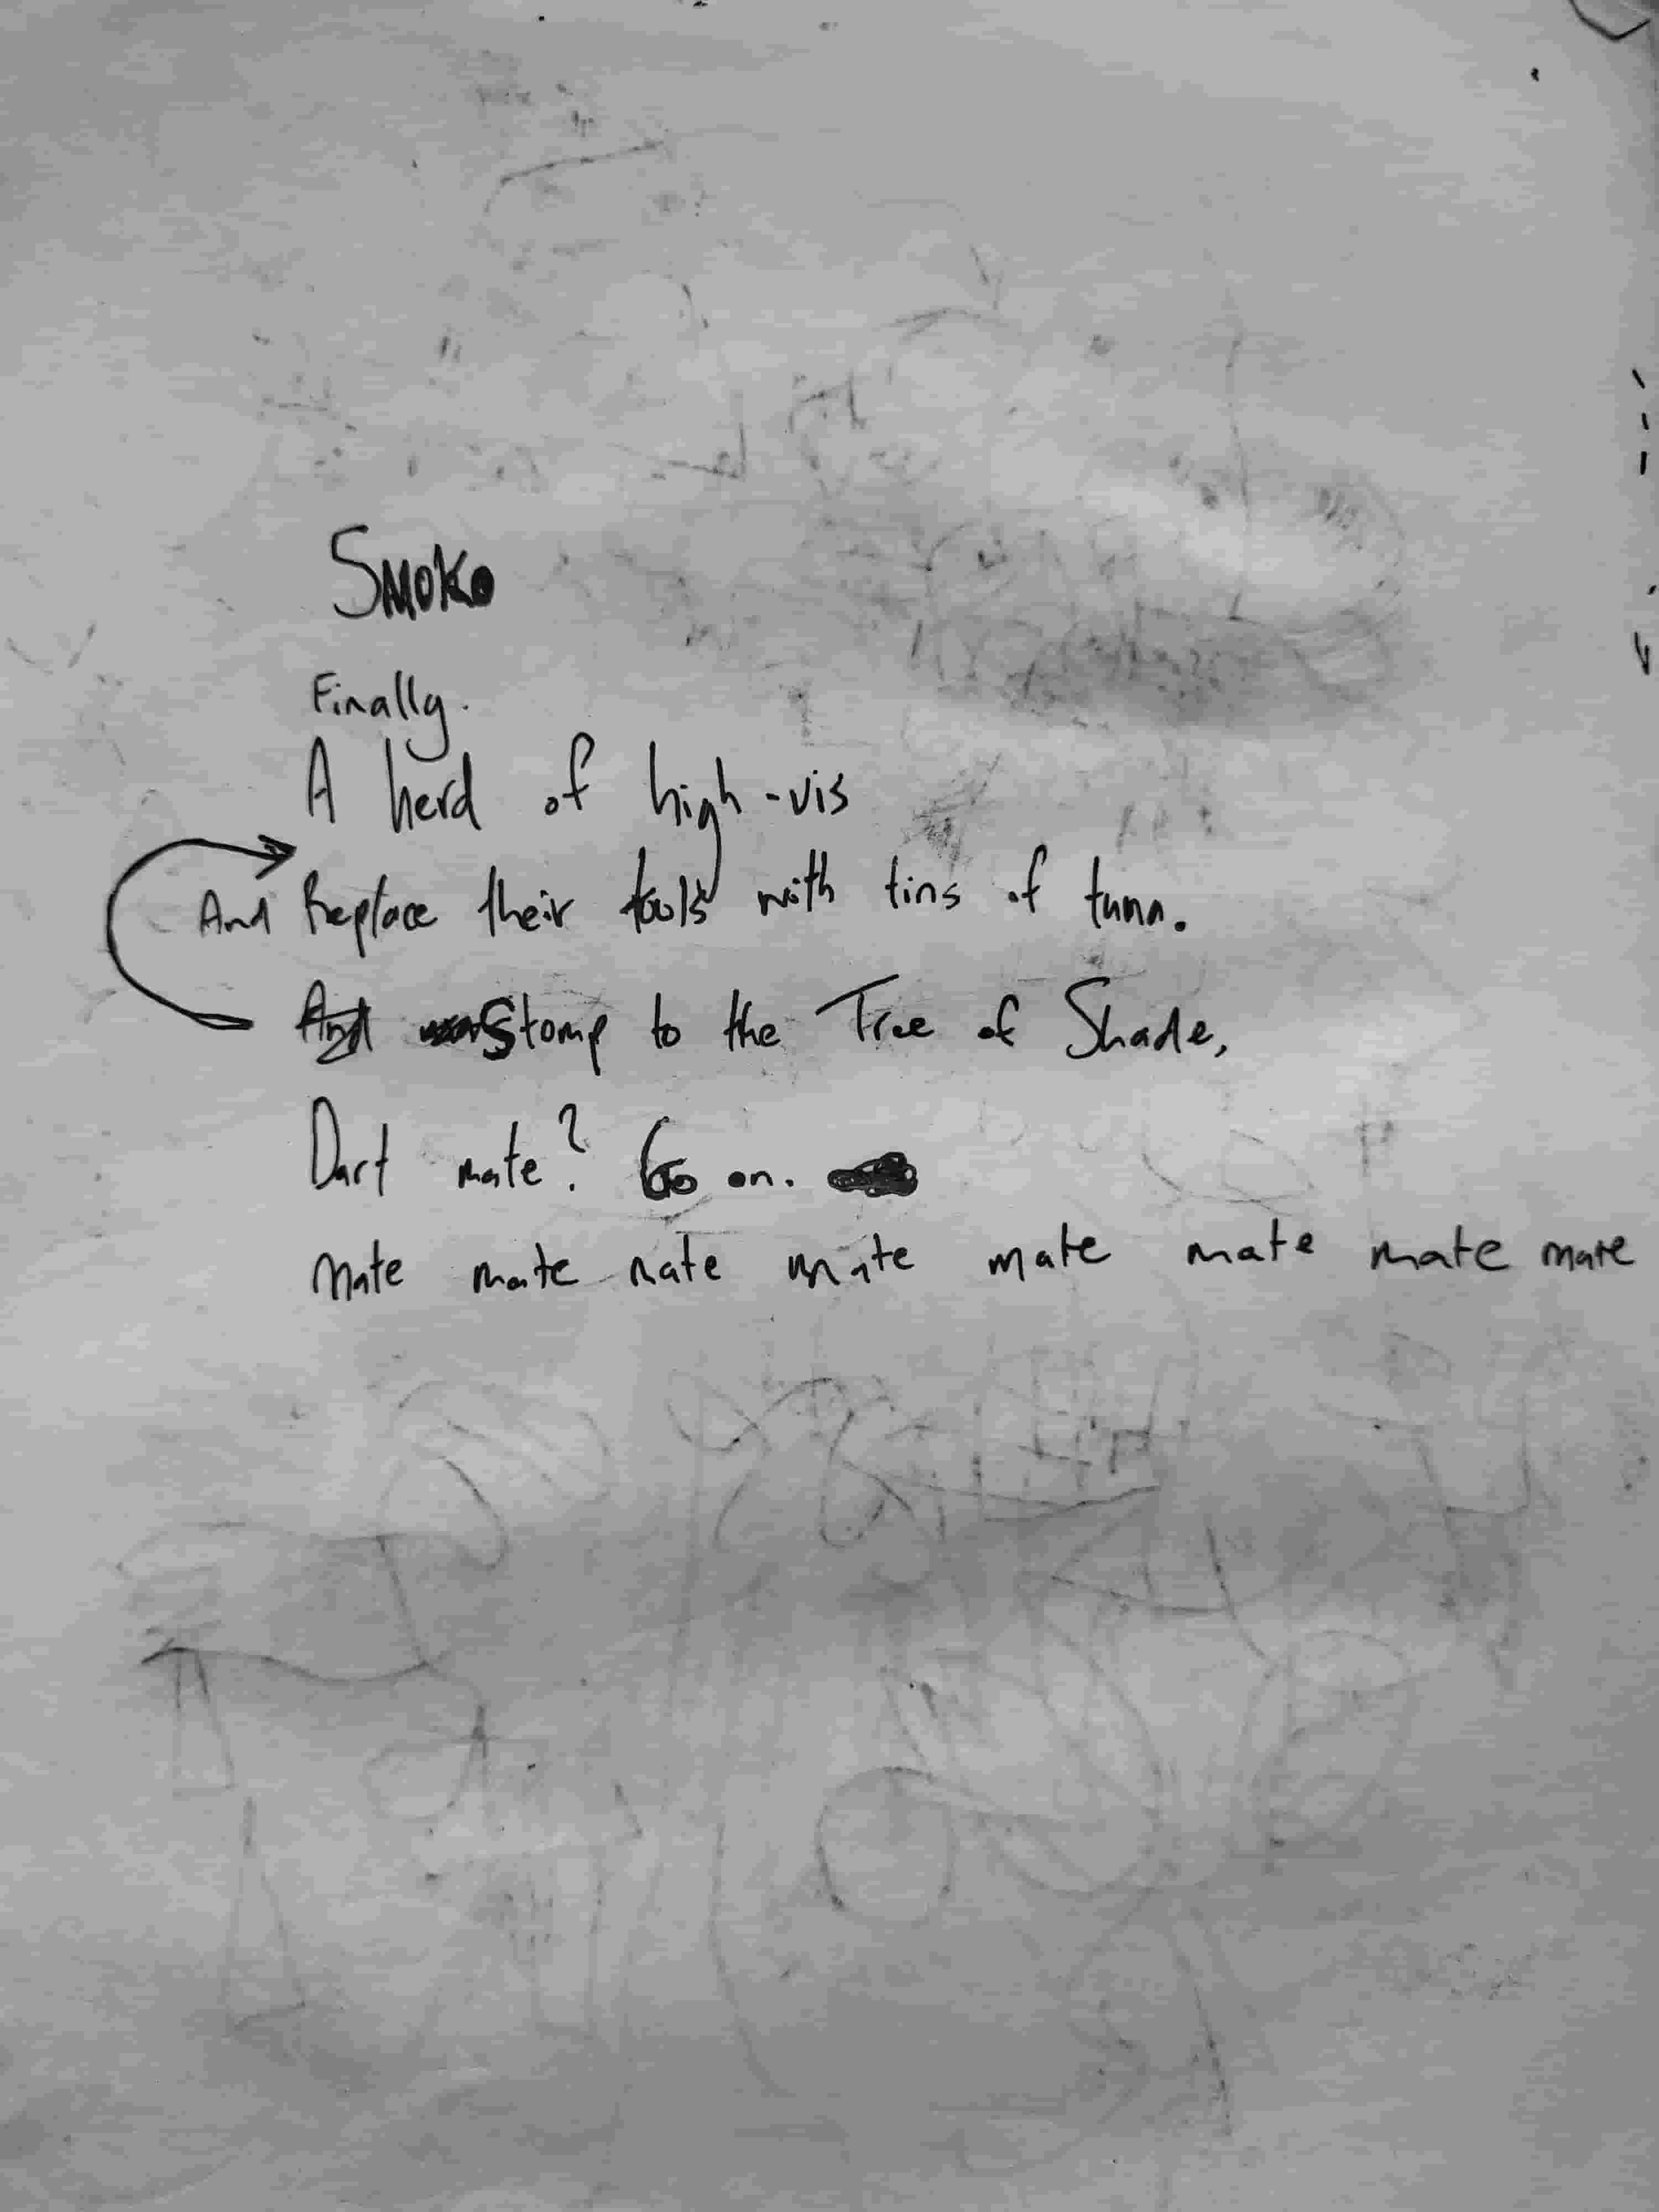 Smoko
Finally.
A herd of high-vis
And Replace their tools with tins of tuna.
And Stomp to the Tree of Shade,
Dart mate? Go on.
Mate mate mate mate mate mate mate mate